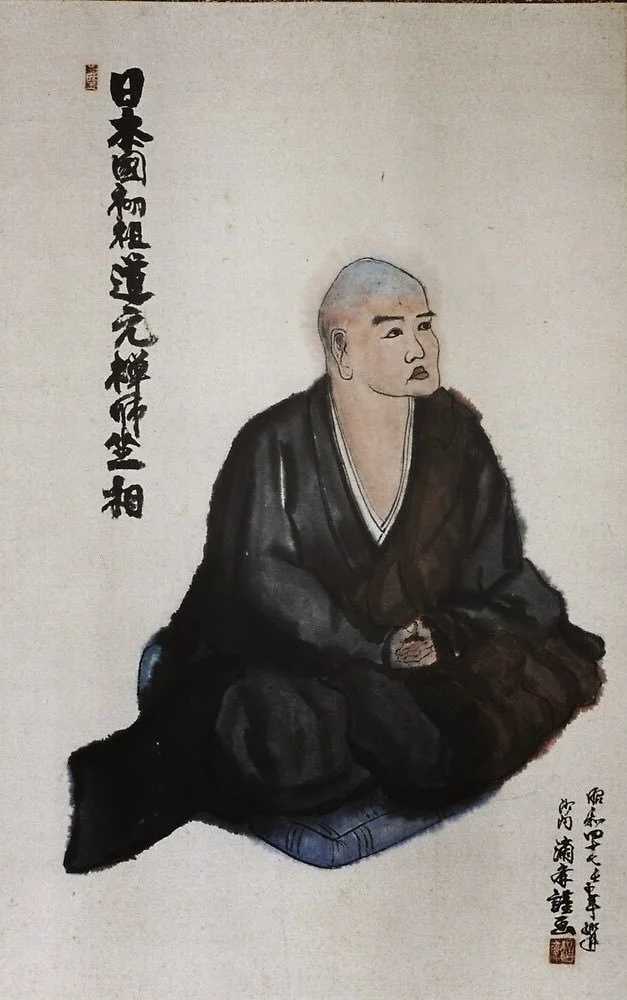 日本國初祖道元禅師坐相
昭和四十七壬子年
沙門 謹画